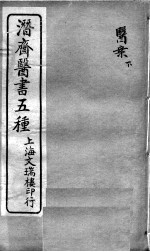 醫案 下
潛齋醫書五種
上海文瑞樓印行